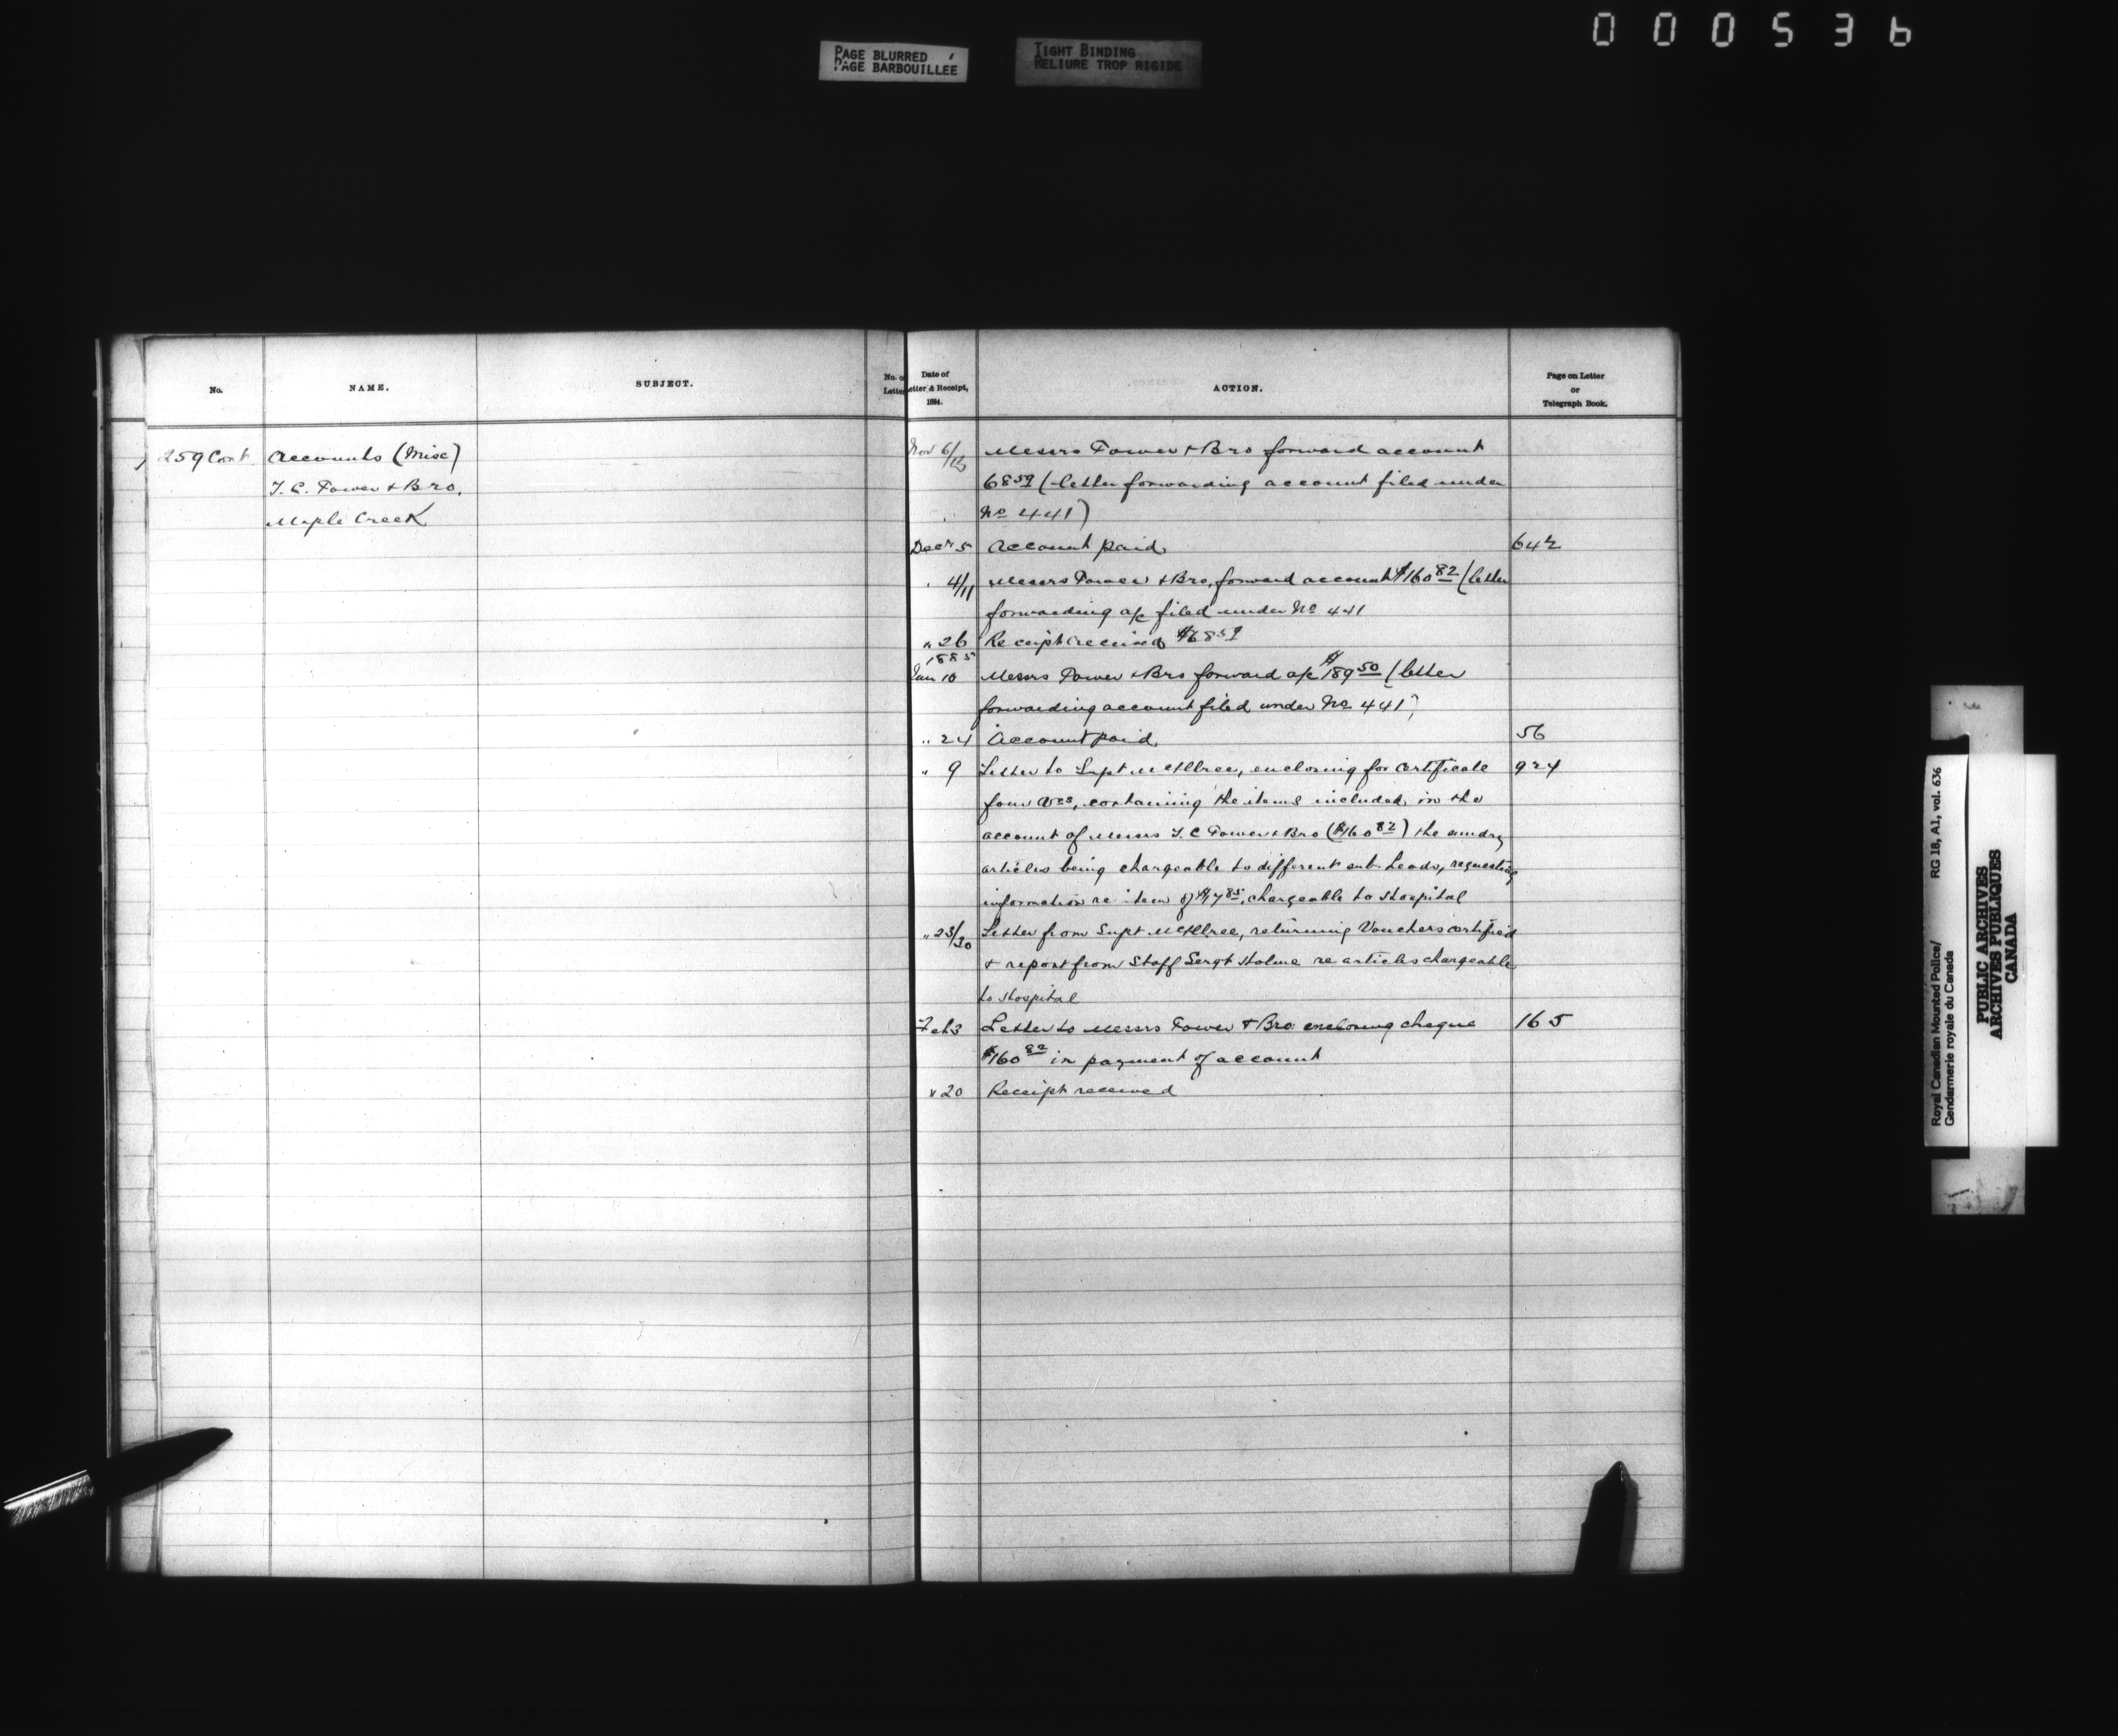 000536
PAGE BLURRED
PAGE BARBOUILLEE
TIGHT BINDING
RELIURE TROP RIGIDE
No.
NAME.
SUBJECT.
No. o
Letter
Date of
etter & Receipt,
1884.
ACTION.
Page on Letter
or
Telegraph Book.
259 Cont
Accounts (Misc)
T. C. Power & Bro.
Maple Creek
Nov 6/13 Messrs Power & Bro forward account
68 59 (letter forwarding account filed under
No 441)
Decr 5 Account paid 642
" 4/11 Messrs Power & Bro, forward account $160 82 (letter
forwarding a/c filed under No 441
" 26 Receipt received $68 59
1885
Jan 10 Messrs Power & Bro forward a/c $189 50 (letter
forwarding account filed under No 441)
" 24 Account paid 56
" 9 Letter to Supt McIllree, enclosing for certificate 924
four , containing the items included in the
account of Messrs T. C Power & Bro ($160 82) the sundry
articles being chargeable to different sub heads, requesting
information re item of $17 85, chargeable to Hospital
" 23/30 Letter from Supt McIllree, returning Vouchers certified
& report from Staff Sergt Holme re articles chargeable
to Hospital
Feb 3 Letter to Messrs Power & Bro enclosing cheque 165
$160 82 in payment of account
" 20 Receipt received
Royal Canadian Mounted Police/
Gendarmerie royale du Canada
RG 18, A1, vol. 636
PUBLIC ARCHIVES
ARCHIVES PUBLIQUES
CANADA